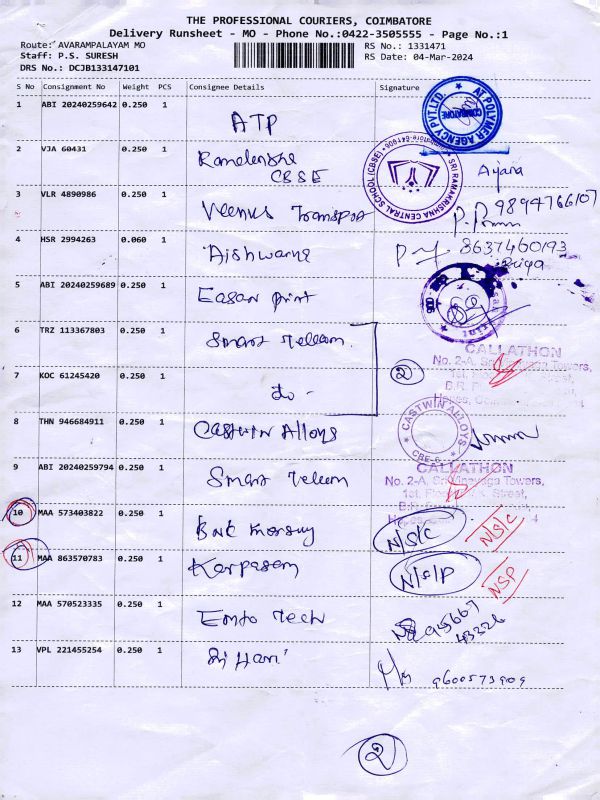 THE PROFESSIONAL COURIERS, COIMBATORE
Delivery Runsheet - MO - Phone No.:0422-3505555 - Page No.:1
Route: AVARAMPALAYAM MO
RS No.: 1331471
Staff: P.S. SURESH
RS Date: 04-Mar-2024
DRS No.: DCJB133147101
S No Consignment No Weight PCS Consignee Details Signature
1 ABI 20240259642 0.250 1
ATP
AI POLYMER AGENCY PVT. LTD. COIMBATORE
2 VJA 60431 0.250 1
CBSE
SRI RAMAKRISHNA CENTRAL SCHOOL (CBSE)
3 VLR 4890986 0.250 1
Veenus Transport
9894766107
4 HSR 2994263 0.060 1
Aishwarya
8637460193
Priya
5 ABI 20240259689 0.250 1
Easan print
6 TRZ 113367803 0.250 1
Smart Telecom
CALLATHON
No. 2-A, Sri Vinayaga Towers,
7 KOC 61245420 0.250 1
do -
2
8 THN 946684911 0.250 1
Castwin Alloys
CASTWIN ALLOYS
CBE-6
9 ABI 20240259794 0.250 1
Smart Telecom
CALLATHON
No. 2-A, Sri Vinayaga Towers,
10 MAA 573403822 0.250 1
N/S/C
N/S/C
11 MAA 863570783 0.250 1
Karpagam
N/S/P
NSP
12 MAA 570523335 0.250 1
Tech
95667
43226
13 VPL 221455254 0.250 1
Sri Hari
9600573909
2